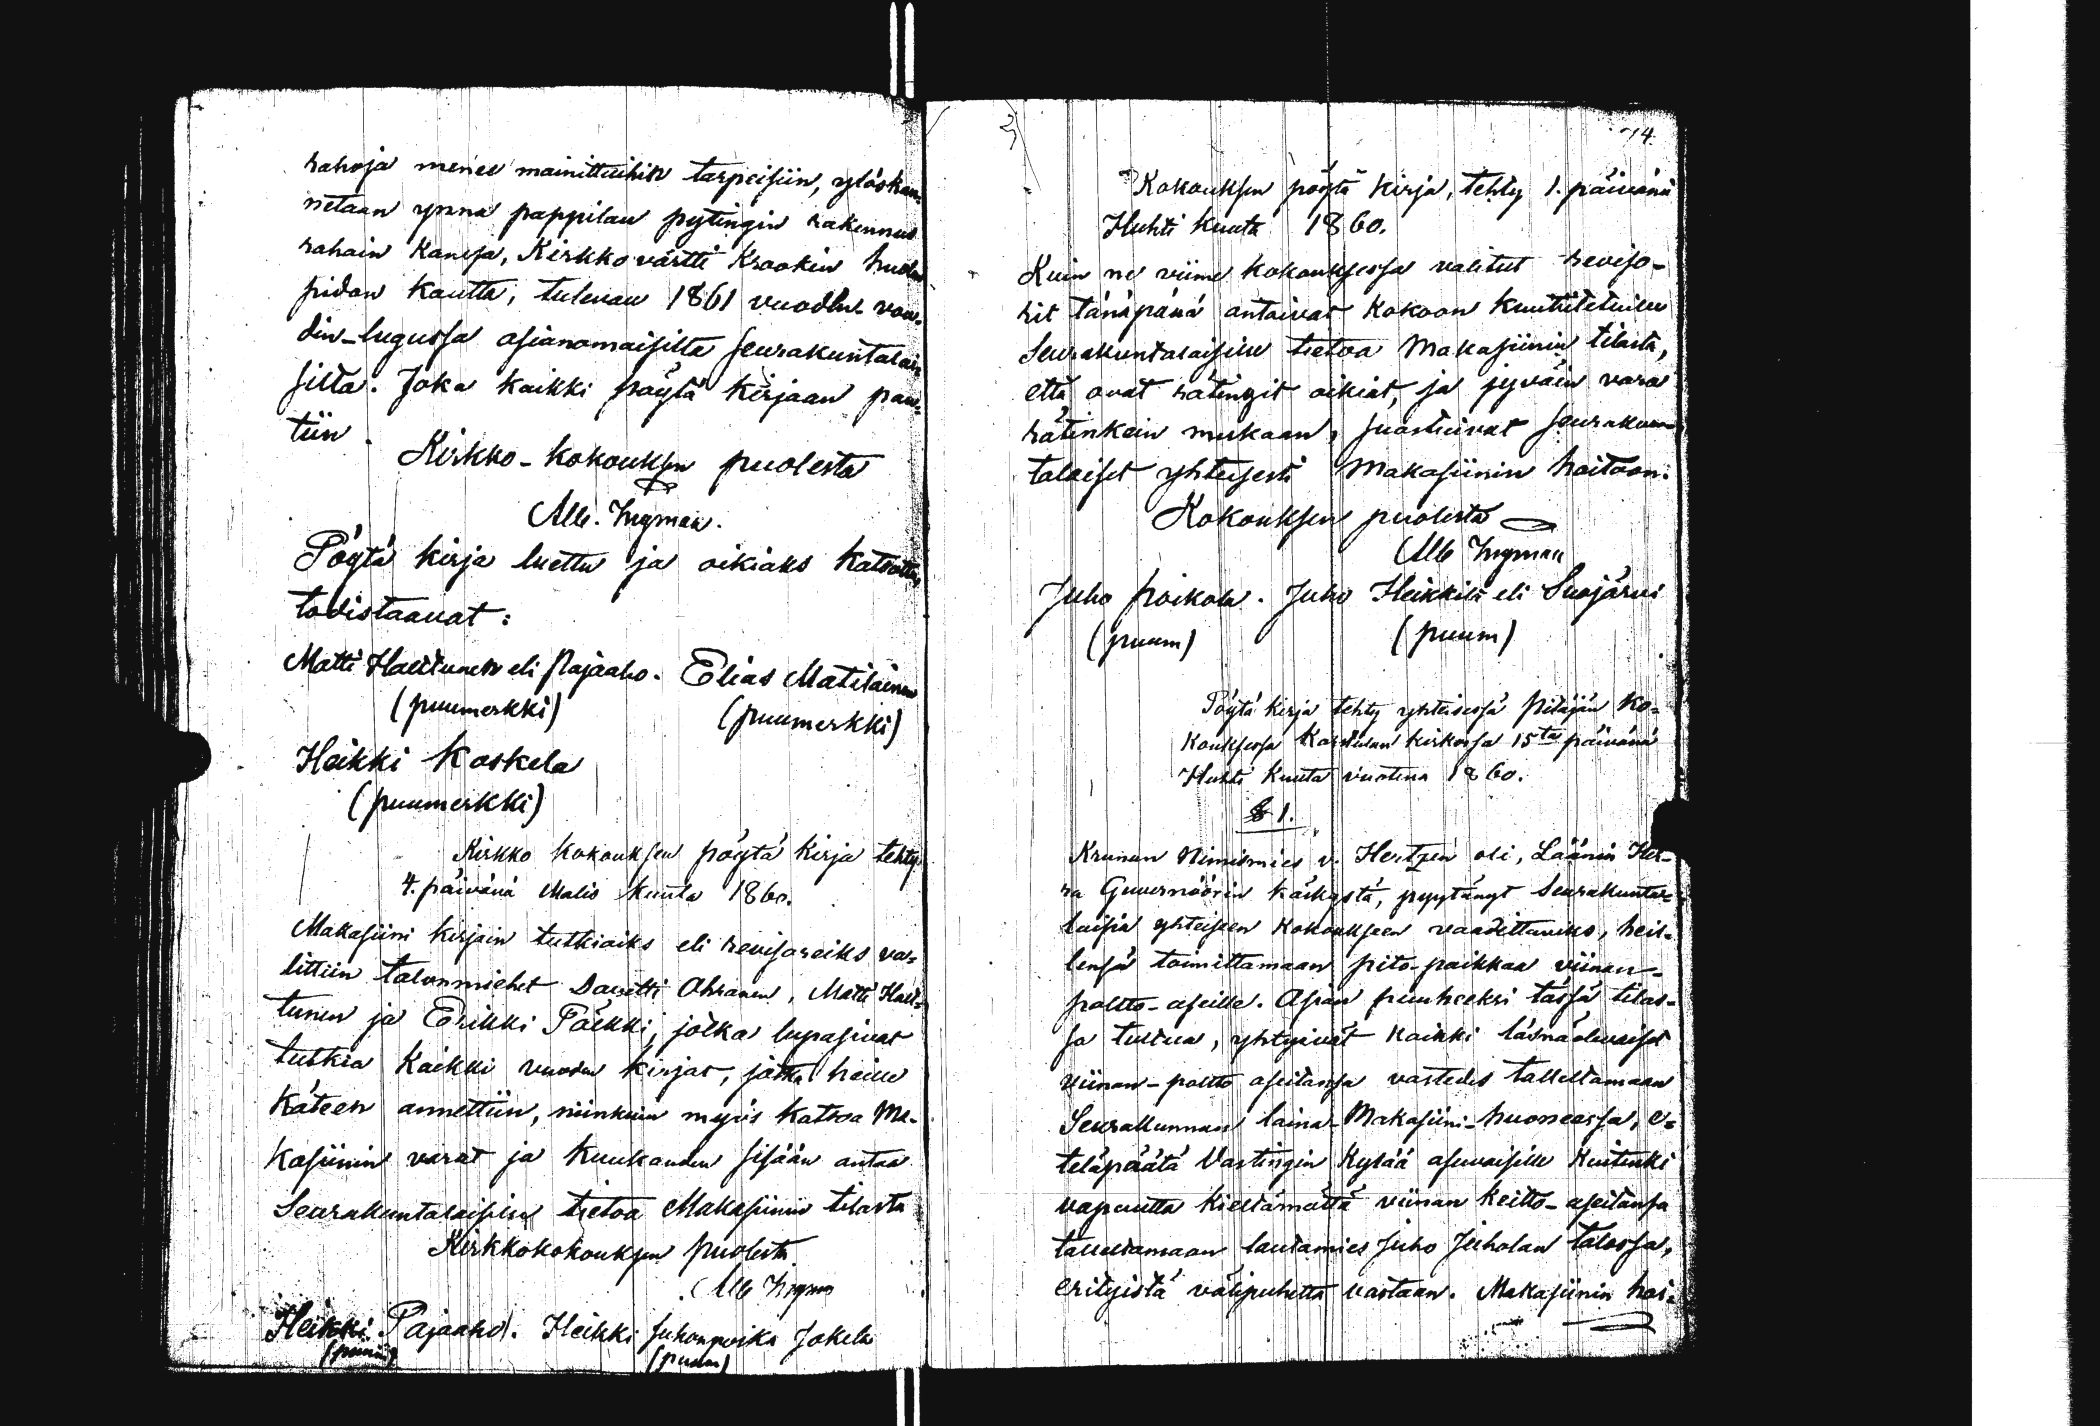 rahoja menee mainittuihin tarpeisiin, ylöskan-
netaan ynnä pappilan pytingin rakennus
rahain kanssa, Kirkkovärtti Krookin huolen
pidon kautta, tulevan 1861 vuoden vou-
din-lugussa asianomaisilta seurakuntalai-
silta. Joka kaikki pöytä kirjaan pan-
tiin.
Kirkko-kokouksen puolesta
Alb. Ingman.
Pöytä kirja luettu ja oikiaks katsottu,
todistaavat:
Matti Hautunen eli Pajaaho. Elias Matilainen
(puumerkki) (puumerkki)
Heikki Koskela
(puumerkki)
Kirkko kokouksen pöytä kirja tehty
4. päivänä Malis kuuta 1860.
Makasiini kirjain tutkiaiks eli revisoreiks va-
littiin talonmiehet Taneli Ahvanen, Matti Hau-
tunen ja Erikki Päkki, jotka lupasivat
tutkia kaikki vuoden kirjat, jotka heille
käteen annettiin, niinkuin myös katsoa Ma-
kasiinin varat ja kuukauden sisään antaa
Seurakuntalaisille tietoa Makasiinin tilasta
Kirkkokokouksen puolesta
Alb Ingman
Heikki Pajaaho. Heikki Juhonpoika Jokela
(puum) (puum)
14.
Kokouksen pöytä kirja, tehty 1. päivänä
Huhti kuuta 1860.
Kuin ne viime kokouksessa valitut reviso-
rit tänäpänä antoivat kokoon kuulutetuille
Seurakuntalaisille tietoa Makasiinin tilasta,
että ovat rätingit oikiat, ja jyväin vara
rätinkein mukaan, suostuivat seurakun-
talaiset yhteisesti Makasiinin hoitoon.
Kokouksen puolesta
Alb Ingman
Juho Poikola. Juho Heikkilä eli Suojärvi
(puum) (puum)
Pöytä kirja tehty yhteisessä Pitäjän ko-
kouksessa Karstulan kirkossa 15ta päivänä
Huhti kuuta vuotena 1860.
§ 1.
Krunun Nimismies v. Hertzen oli, Läänin Her-
ra Guvernöörin käskystä, pyytänyt Seurakunta-
laisia yhteiseen kokoukseen vaadittaviks, heil-
lensä toimittamaan pito-paikkaa viinan-
poltto-aseille. Asian puheeksi tässä tilas-
sa tultua, yhtyivät kaikki läsnäolevaiset
viinan-poltto aseitansa vastedes tallettamaan
Seurakunnan laina-Makasiini-huoneessa, e-
teläpäätä Vastingin kylää asuvaisille kuitenki
vapautta kieltämättä viinan keitto-aseitansa
tallettamaan lautamies Juho Juholan talossa,
erityistä välipuhetta vastaan. Makasiinin hoi-